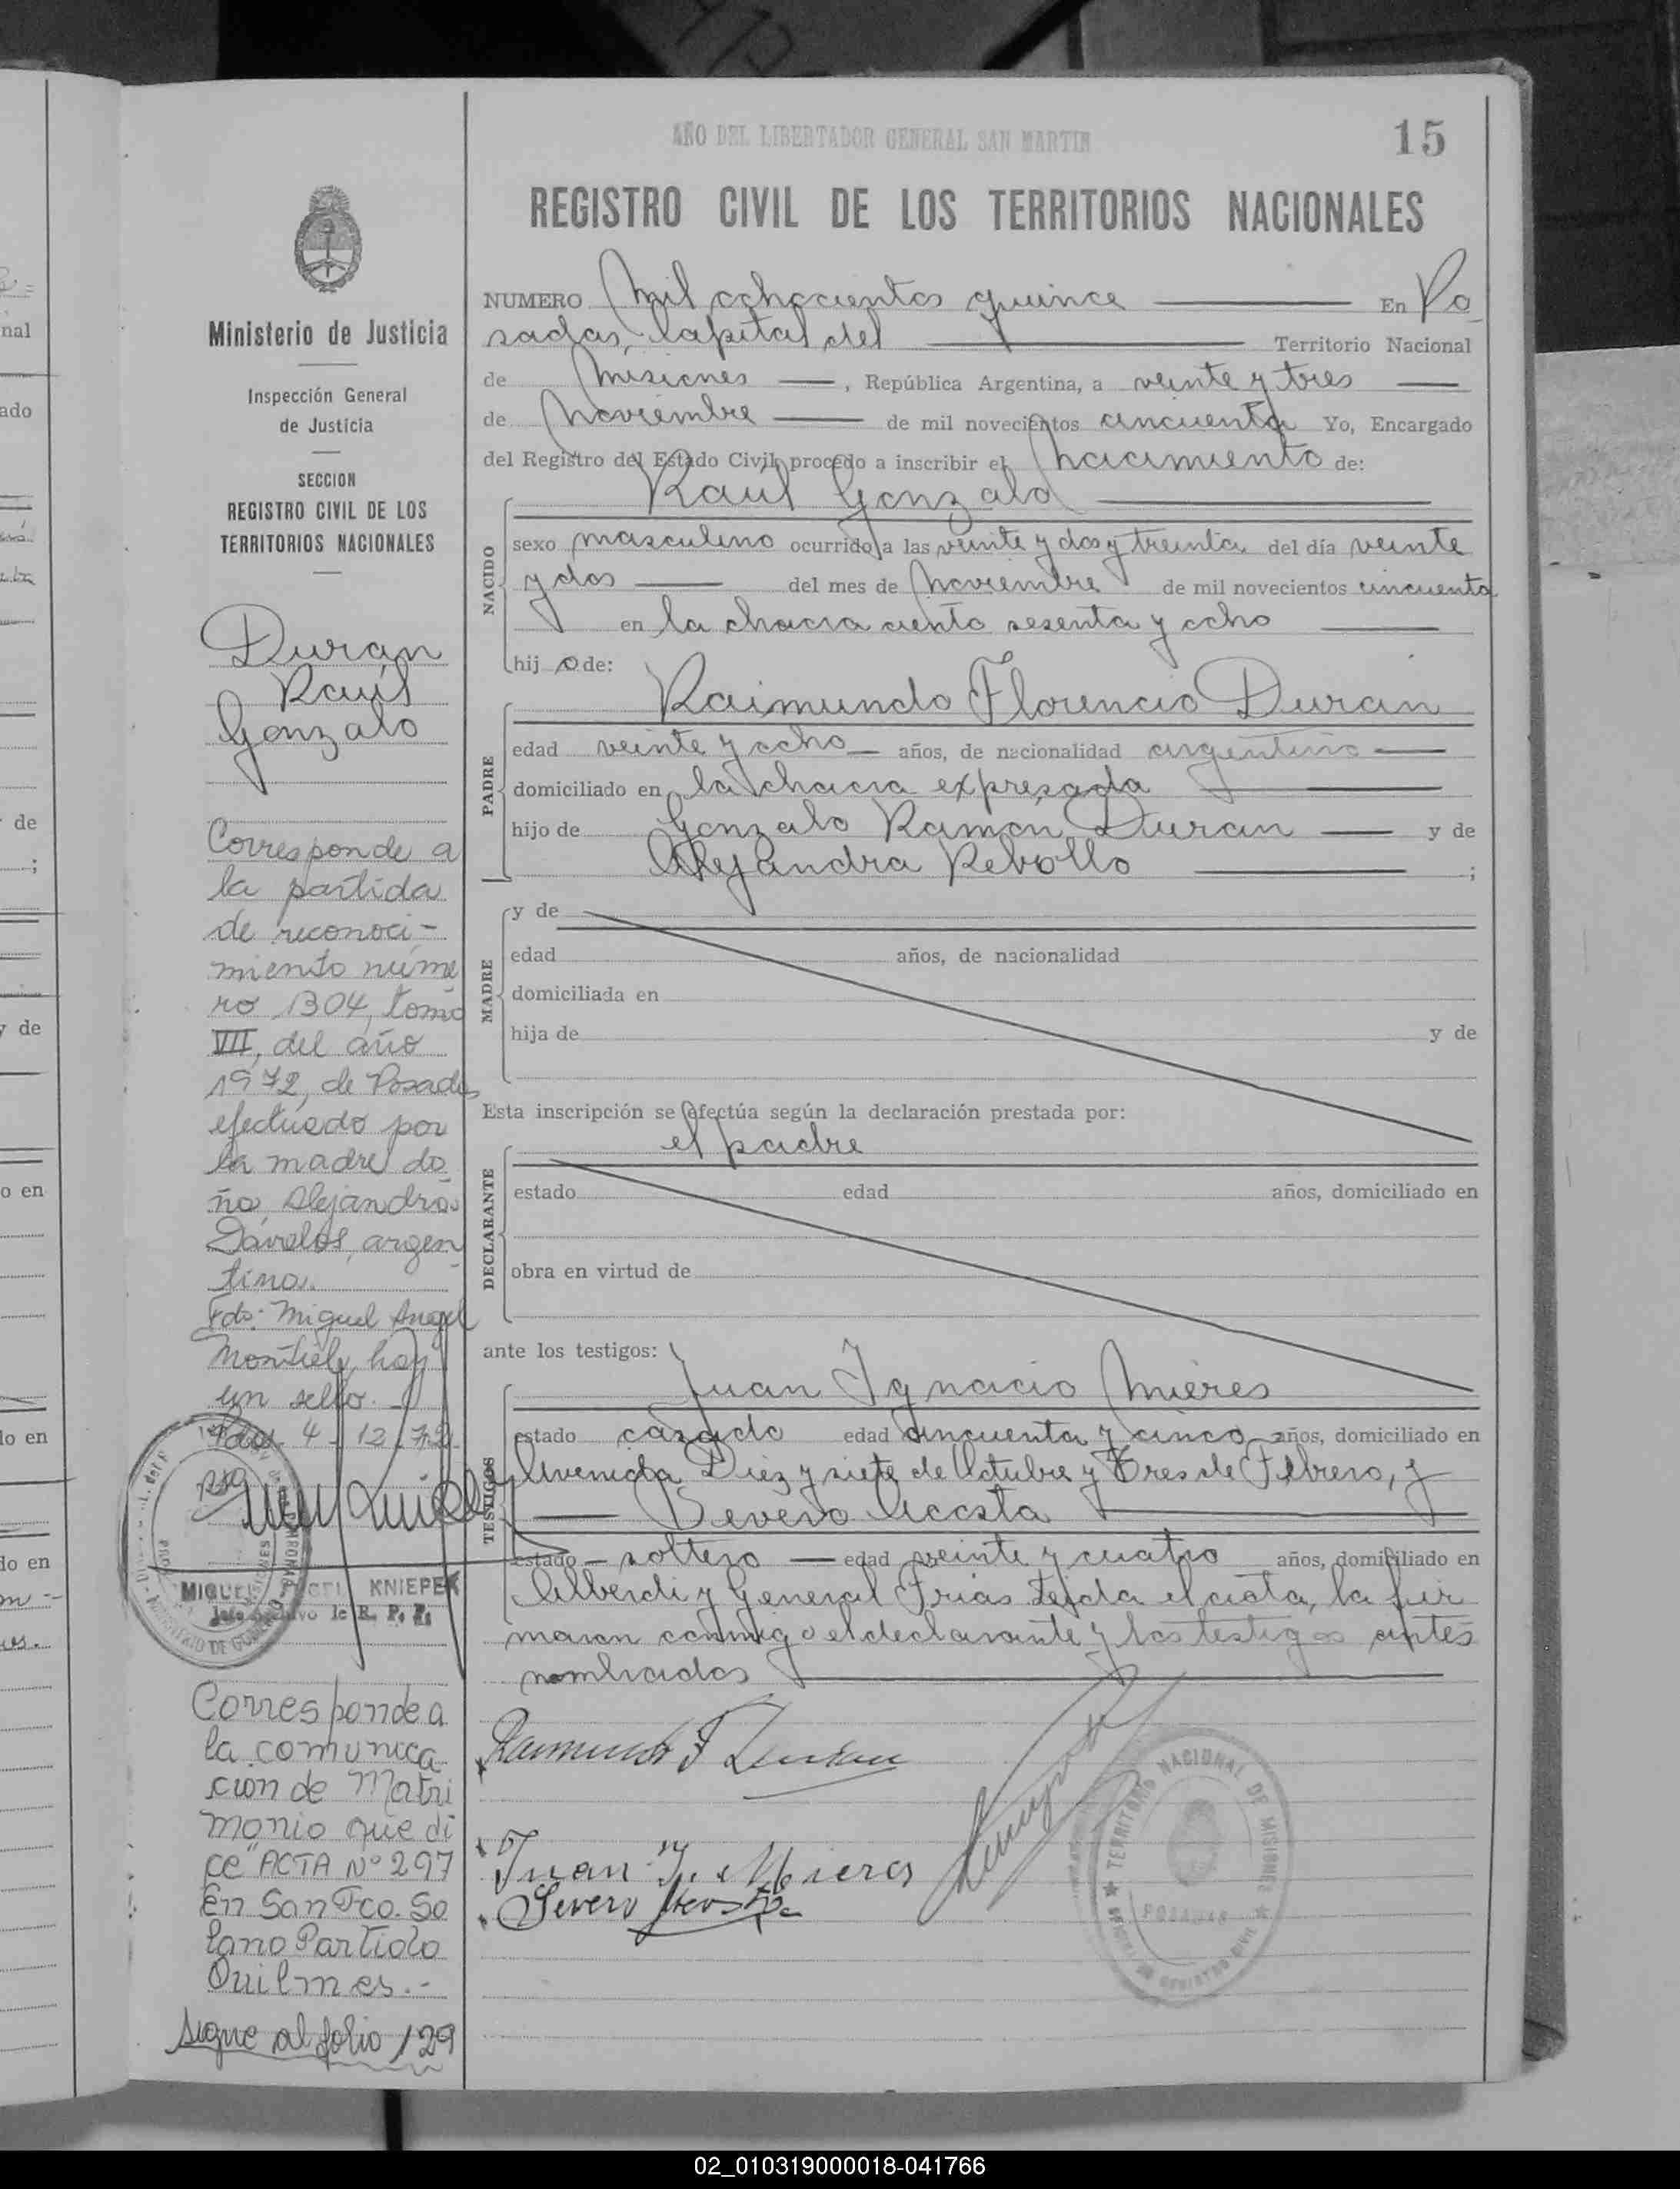 AÑO DEL LIBERTADOR GENERAL SAN MARTIN
15
REGISTRO CIVIL DE LOS TERRITORIOS NACIONALES
Ministerio de Justicia
Inspección General
de Justicia
SECCION
REGISTRO CIVIL DE LOS
TERRITORIOS NACIONALES
Duran
Raúl
Gonzalo
Corresponde a
la partida
de reconoci-
miento núme
ro 1304, tomo
VII, del año
1972, de Posadas
efectuado por
la madre do
ña Alejandra
Dávalos, argen
tina.
Fdo: Miguel Angel
Montiel, hay
un sello.
Pdas. 4-12-72
MIGUEL ANGEL KNIEPER
R. P. P.
Corresponde a
la comunica
ción de Matri
monio que di
ce "ACTA Nº 297
En San Fco. So
lano Partido
Quilmes.-
sigue al folio 129
NUMERO Mil ochocientos quince En Po
sadas, Capital del Territorio Nacional
de Misiones, República Argentina, a veinte y tres
de Noviembre de mil novecientos cincuenta Yo, Encargado
del Registro del Estado Civil, procedo a inscribir el nacimiento de:
Raúl Gonzalo
NACIDO
sexo masculino ocurrido a las veinte y dos y treinta del día veinte
y dos del mes de Noviembre de mil novecientos cincuenta
en la chacra ciento sesenta y ocho
hijo de:
PADRE
Raimundo Florencio Duran
edad veinte y ocho años, de nacionalidad argentino
domiciliado en la chacra expresada
hijo de Gonzalo Ramon Duran y de
Alejandra Rebollo ;
MADRE
y de
edad años, de nacionalidad
domiciliada en
hija de y de
Esta inscripción se efectúa según la declaración prestada por:
el padre
DECLARANTE
estado edad años, domiciliado en
obra en virtud de
ante los testigos:
TESTIGOS
Juan Ignacio Mieres
estado casado edad cincuenta y cinco años, domiciliado en
Avenida Diez y siete de Octubre y Tres de Febrero, y
Severo Acosta
estado soltero edad veinte y cuatro años, domiciliado en
Alberdi y General Frias Leida el acta, la fir
maron conmigo el declarante y los testigos antes
nombrados
Raimundo F Duran
Juan Y. Mieres
Severo Acosta
TERRITORIO NACIONAL DE MISIONES
POSADAS
REGISTRO CIVIL
02_010319000018-041766